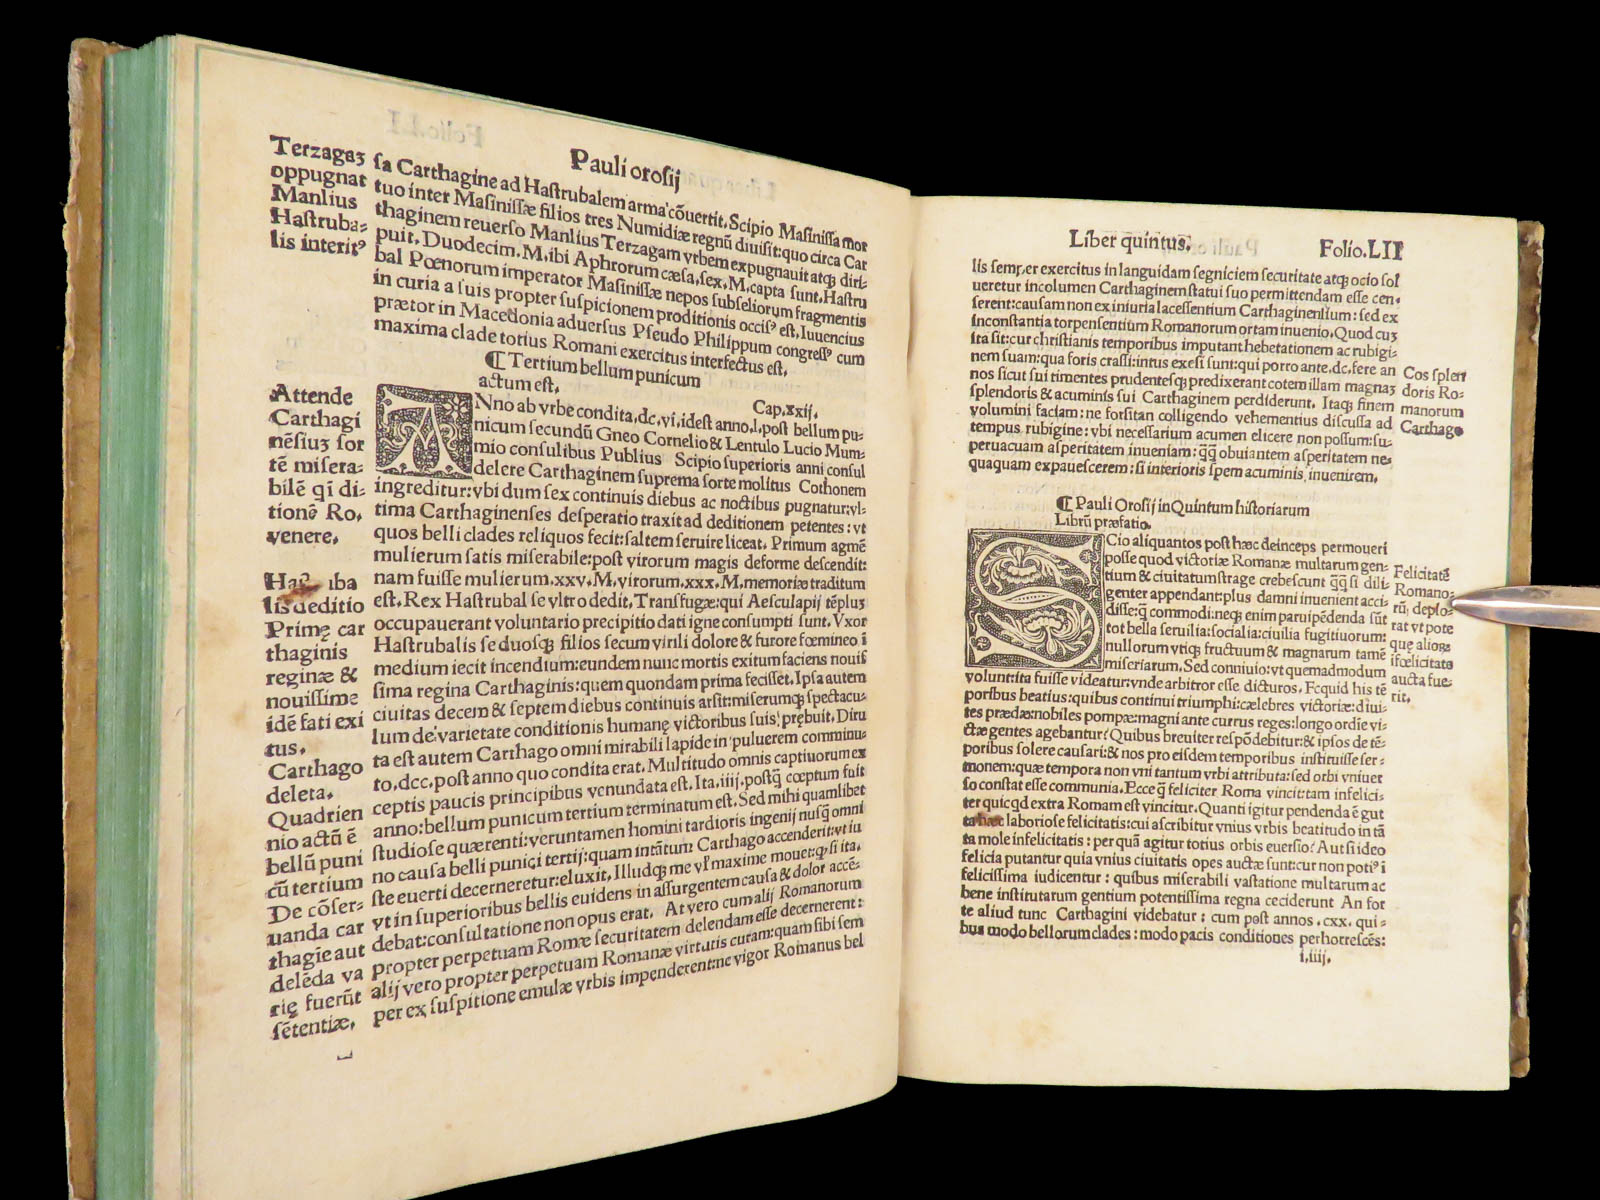 Pauli orosij
Terzagaʒ
oppugnat
Manlius
Haſtruba-
lis interitꝰ
ſa Carthagine ad Haſtrubalem arma cõuertit. Scipio Maſiniſſa mor
tuo inter Maſiniſſæ filios tres Numidiæ regnũ diuiſit: quo circa Car
thaginem reuerſo Manlius Terzagam vrbem expugnauit atqꝫ diri-
puit. Duodecim. M. ibi Aphrorum cæſa, ſex. M. capta ſunt. Haſtru
bal Pœnorum imperator Maſiniſſæ nepos ſubſeliorum fragmentis
in curia a ſuis propter ſuſpicionem proditionis occiſꝰ eſt. Iuuencius
prætor in Macedonia aduerſus Pſeudo Philippum congreſſꝰ cum
maxima clade totius Romani exercitus interfectus eſt.
¶ Tertium bellum punicum
actum eſt. Cap. xxij.
Attende
Carthagi
nẽſiuʒ ſor
tẽ miſera-
bilẽ qͥ di-
tionẽ Ro.
venere.
ANno ab vrbe condita. dc. vi. ideſt anno. l. poſt bellum pu-
nicum ſecundũ Gneo Cornelio & Lentulo Lucio Mum-
mio conſulibus Publius Scipio ſuperioris anni conſul
delere Carthaginem ſuprema ſorte molitus Cothonem
ingreditur: vbi dum ſex continuis diebus ac noctibus pugnatur: vl-
tima Carthaginenſes deſperatio traxit ad deditionem petentes: vt
quos belli clades reliquos fecit: ſaltem ſeruire liceat. Primum agmẽ
mulierum ſatis miſerabile: poſt virorum magis deforme deſcendit:
nam fuiſſe mulierum. xxv. M. virorum. xxx. M. memoriæ traditum
eſt. Rex Haſtrubal ſe vltro dedit. Transfugæ: qui Aeſculapij tẽplus
occupauerant voluntario precipitio dati igne conſumpti ſunt. Vxor
Haſtrubalis ſe duoſqꝫ filios ſecum virili dolore & furore fœmineo ĩ
medium iecit incendium: eundem nunc mortis exitum faciens nouiſ
ſima regina Carthaginis: quem quondam prima feciſſet. Ipſa autem
ciuitas decem & ſeptem diebus continuis arſit: miſerumqꝫ ſpectacu-
lum de varietate conditionis humanę victoribus ſuis prębuit. Diru
ta eſt autem Carthago omni mirabili lapide in puluerem comminu-
to. dcc. poſt anno quo condita erat. Multitudo omnis captiuorum ex
ceptis paucis principibus venundata eſt. Ita. iiij. poſtꝗ̃ cœptum fuit
anno: bellum punicum tertium terminatum eſt. Sed mihi quamlibet
ſtudioſe quærenti: veruntamen homini tardioris ingenij nuſꝗ̃ omni
no cauſa belli punici tertij: quam intãtum Carthago accenderit: vt iu
ſte euerti decerneretur: eluxit. Illudqꝫ me vl' maxime mouet: qꝫ ſi ita.
vt in ſuperioribus bellis euidens in aſſurgentem cauſa & dolor accẽ-
debat: conſultatione non opus erat. At vero cum alij Romanorum
propter perpetuam Romæ ſecuritatem delendam eſſe decernerent:
alij vero propter perpetuam Romanæ virtutis curam: quam ſibi ſem
per ex ſuſpitione emulæ vrbis impenderent: ne vigor Romanus bel
lis deditio
Primę car
thaginis
reginæ &
nouiſſime
idẽ fati exi
tus.
Carthago
deleta.
Quadrien
nio actũ ẽ
bellũ puni
cũ tertium
De cõſer-
uanda car
thagie aut
delẽda va
rię fuerũt
ſẽtentiæ.
Liber quintus. Folio. LII
lis ſemper exercitus in languidam ſegniciem ſecuritate atqꝫ ocio ſol
ueretur incolumen Carthaginem ſtatui ſuo permittendam eſſe cen-
ſerent: cauſam non ex iniuria laceſſentium Carthaginenſium: ſed ex
inconſtantia torpenſentium Romanorum ortam inuenio. Quod cuʒ
ita ſit: cur chriſtianis temporibus imputant hebetationem ac rubigi-
nem ſuam: qua foris craſſi: intus exeſi ſunt: qui porro ante. dc. fere an
nos ſicut ſui timentes prudenteſqꝫ predixerant cotem illam magnaʒ
ſplendoris & acuminis ſui Carthaginem perdiderunt. Itaqꝫ finem
volumini faciam: ne forſitan colligendo vehementius diſcuſſa ad
tempus rubigine: vbi neceſſarium acumen elicere non poſſum: ſu-
peruacuam aſperitatem inueniam: ꝗ̃ꝗ̃ obuiantem aſperitatem ne-
quaquam expaueſcerem: ſi interioris ſpem acuminis inuenirem.
Cos ſplen
doris Ro-
manorum
Carthago
¶ Pauli Oroſij in Quintum hiſtoriarum
Librũ præfatio.
SCio aliquantos poſt hæc deinceps permoueri
poſſe quod victoriæ Romanæ multarum gen-
tium & ciuitatum ſtrage crebeſcunt ꝗ̃ꝗ̃ ſi dili
genter appendant: plus damni inuenient acci-
diſſe: ꝗ̃ commodi: neqꝫ enim paruipẽdenda ſũt
tot bella ſeruilia: ſocialia: ciuilia fugitiuorum:
nullorum vtiqꝫ fructuum & magnarum tamẽ
miſeriarum. Sed conniuio: vt quemadmodum
volunt: ita fuiſſe videatur: vnde arbitror eſſe dicturos. Ecquid his tẽ
poribus beatius: quibus continui triumphi: cælebres victoriæ: diui-
tes prædæ: nobiles pompæ: magni ante currus reges: longo ordĩe vi-
ctæ gentes agebantur? Quibus breuiter reſpõdebitur: & ipſos de tẽ-
poribus ſolere cauſari: & nos pro eiſdem temporibus inſtituiſſe ſer-
monem: quæ tempora non vni tantum vrbi attributa: ſed orbi vniuer
ſo conſtat eſſe communia. Ecce ꝗ̃ feliciter Roma vincit: tam infelici-
ter quicqd extra Romam eſt vincitur. Quanti igitur pendenda ẽ gut
ta hæc laborioſe felicitatis: cui aſcribitur vnius vrbis beatitudo in tã
ta mole infelicitatis: per quã agitur totius orbis euerſio? Aut ſi ideo
felicia putantur quia vnius ciuitatis opes auctæ ſunt: cur non potiꝰ ĩ
feliciſſima iudicentur: quibus miſerabili vaſtatione multarum ac
bene inſtitutarum gentium potentiſſima regna ceciderunt An for
te aliud tunc Carthagini videbatur: cum poſt annos. cxx. qui-
bus modo bellorum clades: modo pacis conditiones perhorreſcẽs:
i. iiij.
Felicitatẽ
Romano-
rũ: deplo-
rat vt pote
que alioꝝ
ĩfœlicitate
aucta fue-
rit.